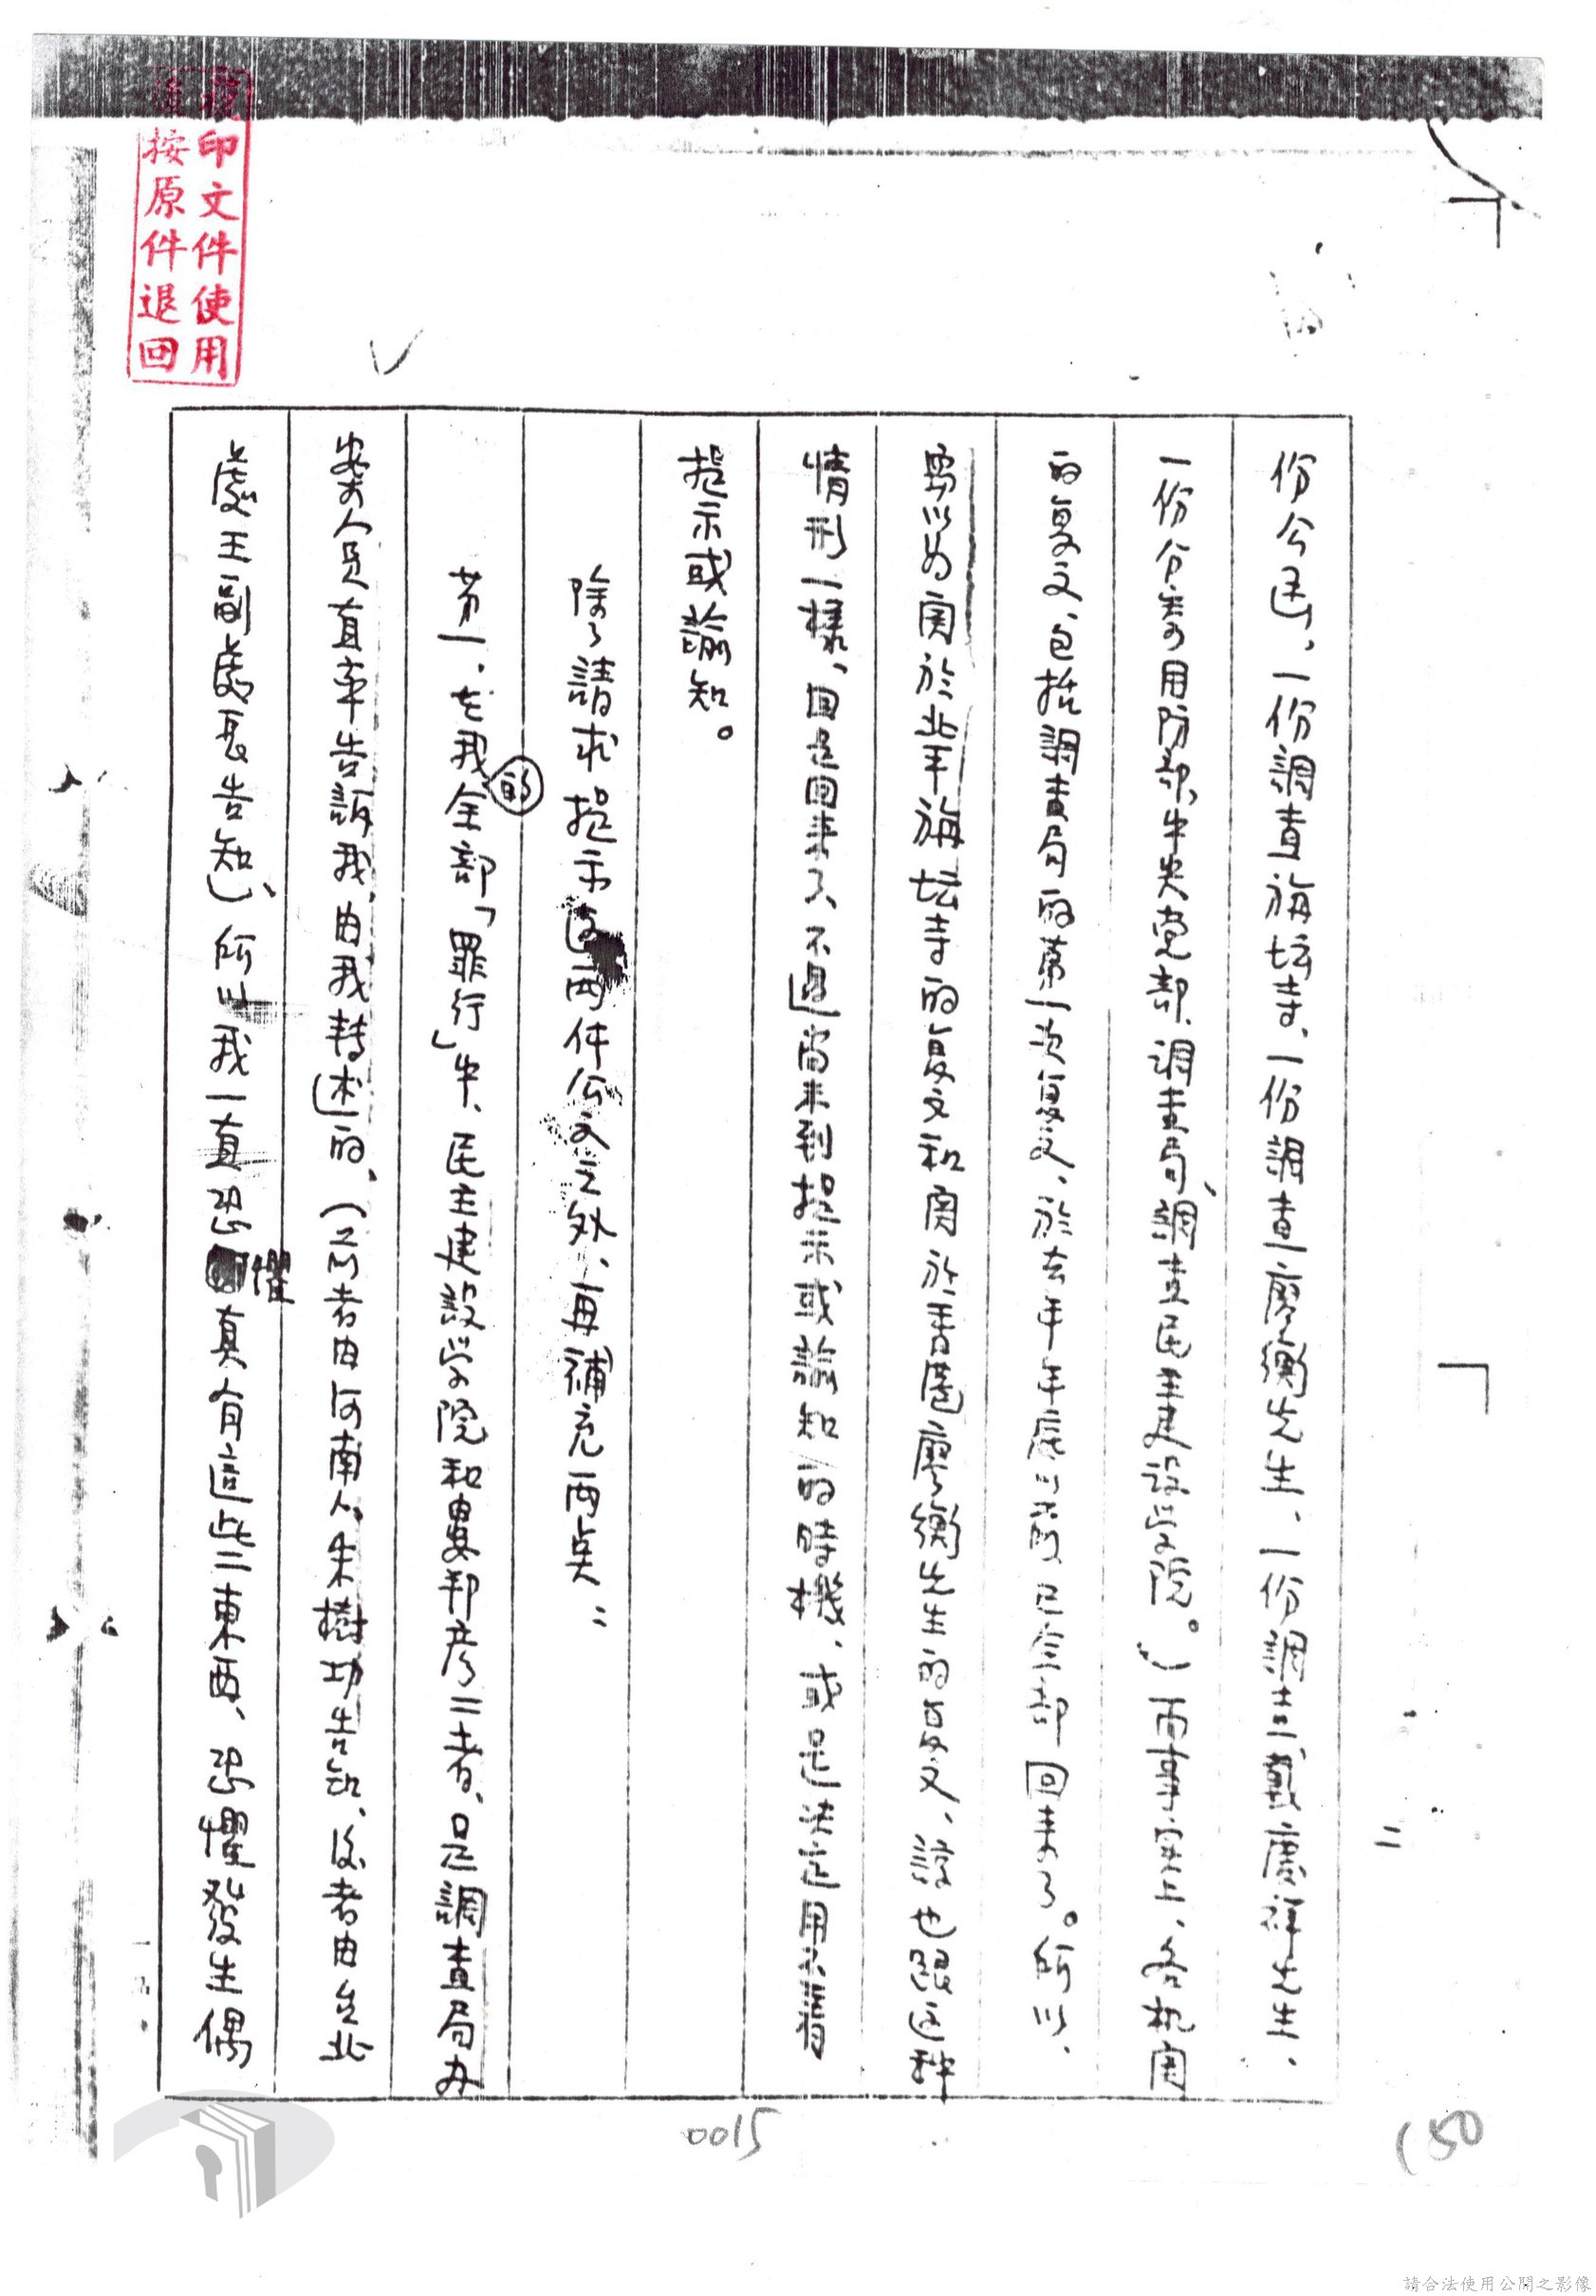 複印文件使用
後按原件退回
二
份公函，一份調查旃坛寺、一份調查廖衡先生、一份調查戴慶祥先生、
一份分寄用防部、中央党部、調查局、調查民主建设学院。）而事実上、各机関
的复文、包括調查局的第一次复文、於去年年底以前已全部回来了。所以、
要以为関於北平旃坛寺的复文和関於香港廖衡先生的复文、該也跟这种
情形一樣、因是回来了、不過尚未到提示或諭知的時機、或是決定用不着
提示或諭知。
除了請求提示这两件公文之外、再補充两点：
第一、在我的全部「罪行」中、民主建設学院和婁邦彦二者、是調查局办
案人员直率告訴我、由我轉述的、（前者由河南人朱樹功告知、後者由台北
處王副處長告知）、所以我一直恐懼真有這些東西、恐懼發生偶
0015
150
請合法使用公開之影像